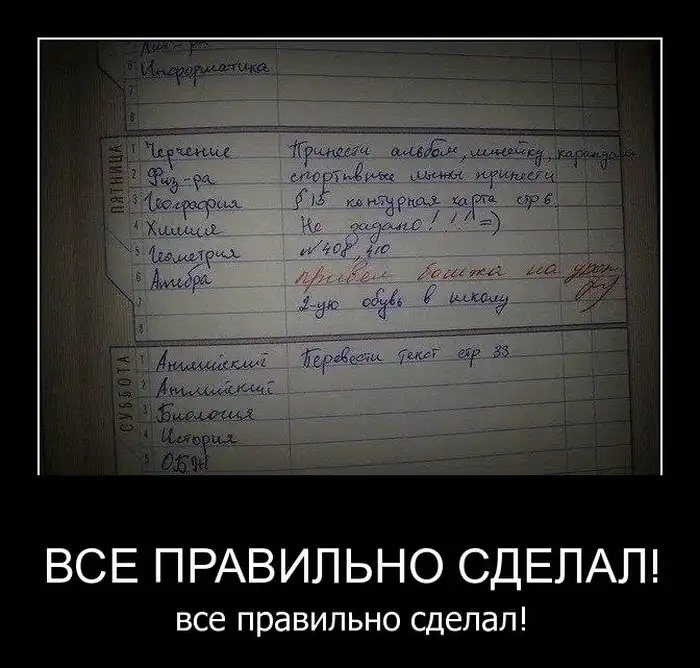 6 Информатика
7
8
ПЯТНИЦА
1 Черчение Принести альбом, линейку, карандаш
2 Физ-ра спортивные лыжи принести
3 География § 15 контурная карта стр 6
4 Химия Не задано! !!! =)
5 Геометрия №408, 410
6 Алгебра привел бомжа на урок
7 2-ую обувь в школу
8
СУББОТА
1 Английский Перевести текст стр 33
2 Английский
3 Биология
4 История
5 ОБЖ
ВСЕ ПРАВИЛЬНО СДЕЛАЛ!
все правильно сделал!